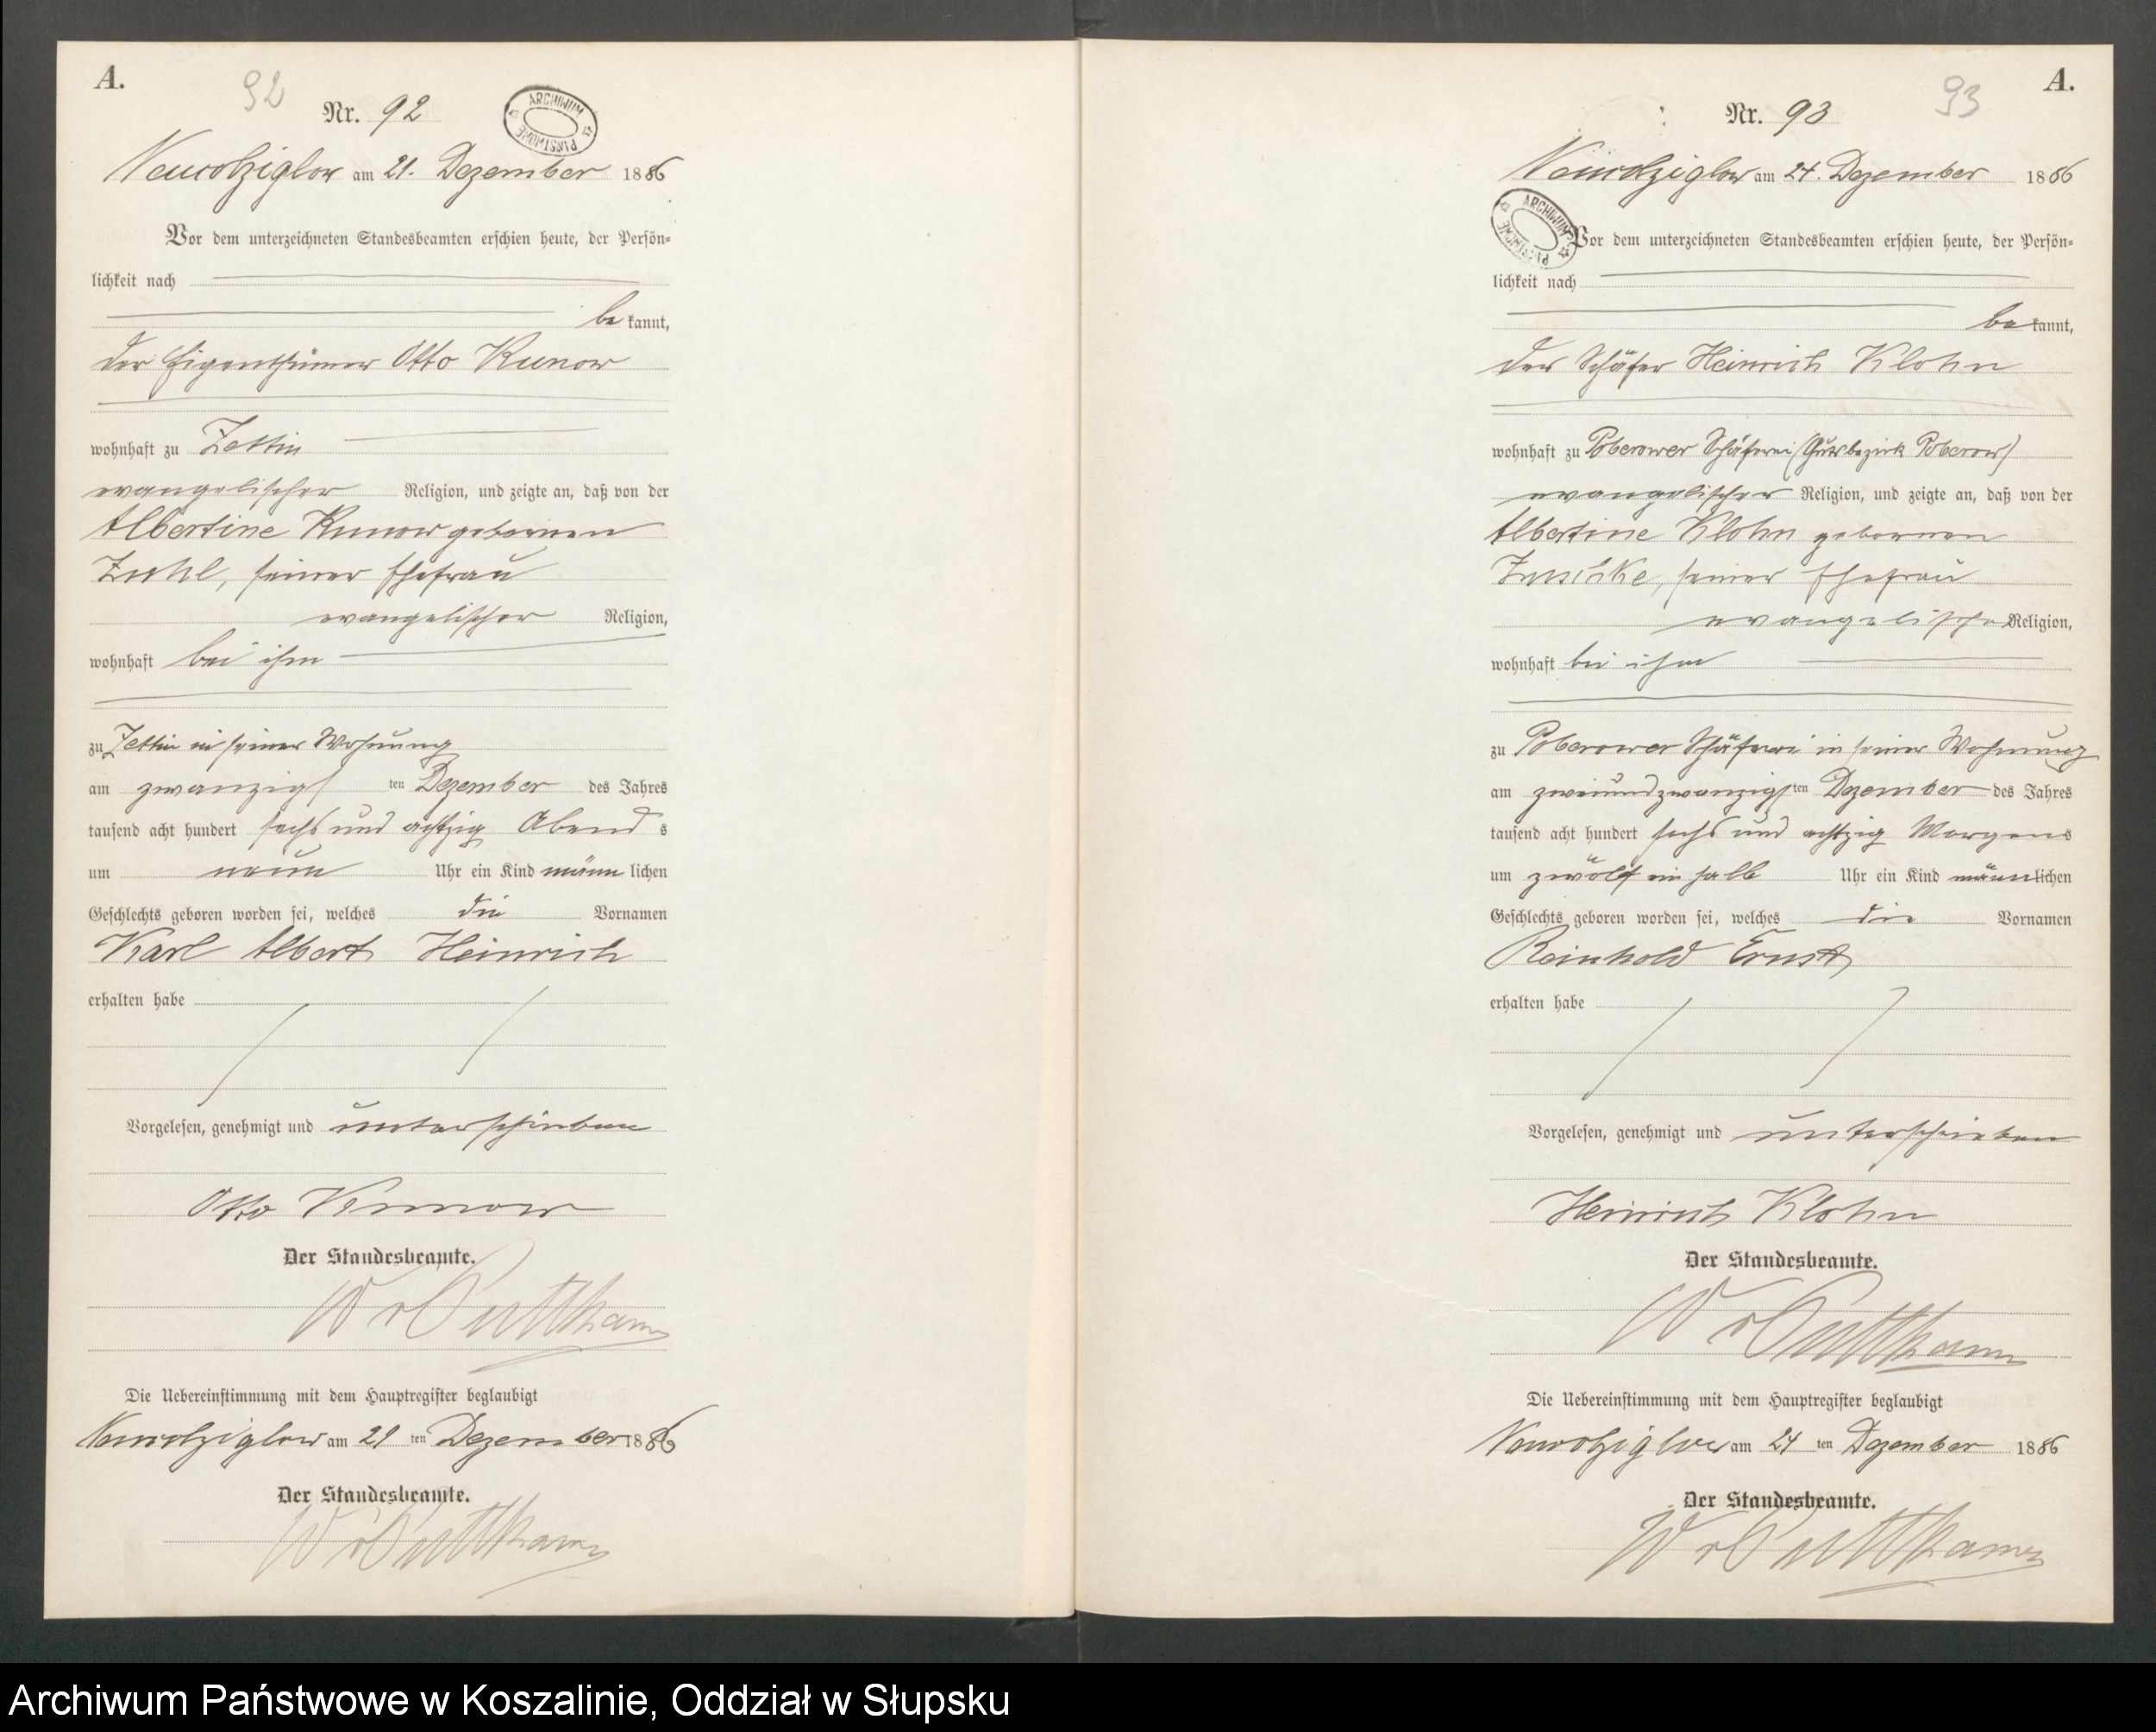 A.
92
Nr. 92
ARCHIWUM PAŃSTWOWE
Neukolziglow am 21. Dezember 1886
Vor dem unterzeichneten Standesbeamten erschien heute, der Persön-
lichkeit nach
be kannt,
der Eigenthümer Otto Kunow
wohnhaft zu Zettin
evangelischer Religion, und zeigte an, daß von der
Albertine Kunow gebornen
seiner Ehefrau
evangelischer Religion,
wohnhaft bei ihm
zu Zettin in seiner Wohnung
am zwanzigs ten Dezember des Jahres
tausend acht hundert sechs und achtzig Abend s
um neun Uhr ein Kind männ lichen
Geschlechts geboren worden sei, welches die Vornamen
Karl Albert Heinrich
erhalten habe
Vorgelesen, genehmigt und unterschrieben
Otto Kunow
Der Standesbeamte.
W v Puttkamer
Die Uebereinstimmung mit dem Hauptregister beglaubigt
Neukolziglow am 21 ten Dezember 1886
Der Standesbeamte.
W v Puttkamer
A.
93
Nr. 93
Neukolziglow am 24. Dezember 1886
ARCHIWUM PAŃSTWOWE
Vor dem unterzeichneten Standesbeamten erschien heute, der Persön-
lichkeit nach
be kannt,
der Schäfer Heinrich Klohn
wohnhaft zu Poberower Schäferei (Gutsbezirk Poberow)
evangelischer Religion, und zeigte an, daß von der
Albertine Klohn gebornen
seiner Ehefrau
evangelischer Religion,
wohnhaft bei ihm
zu Poberower Schäferei in seiner Wohnung
am zweiundzwanzigs ten Dezember des Jahres
tausend acht hundert sechs und achtzig Morgens
um zwölf ein halb Uhr ein Kind männlichen
Geschlechts geboren worden sei, welches die Vornamen
Reinhold Ernst
erhalten habe
Vorgelesen, genehmigt und unterschrieben
Heinrich Klohn
Der Standesbeamte.
W v Puttkamer
Die Uebereinstimmung mit dem Hauptregister beglaubigt
Neukolziglow am 24 ten Dezember 1886
Der Standesbeamte.
W v Puttkamer
Archiwum Państwowe w Koszalinie, Oddział w Słupsku